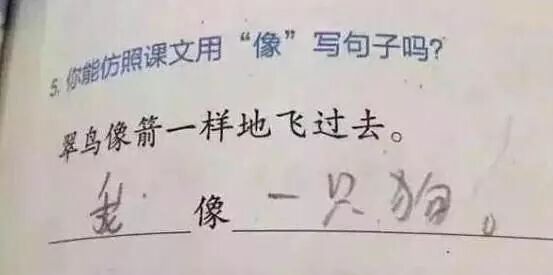 5. 你能仿照课文用“像”写句子吗?
翠鸟像箭一样地飞过去。
我像一只狗。